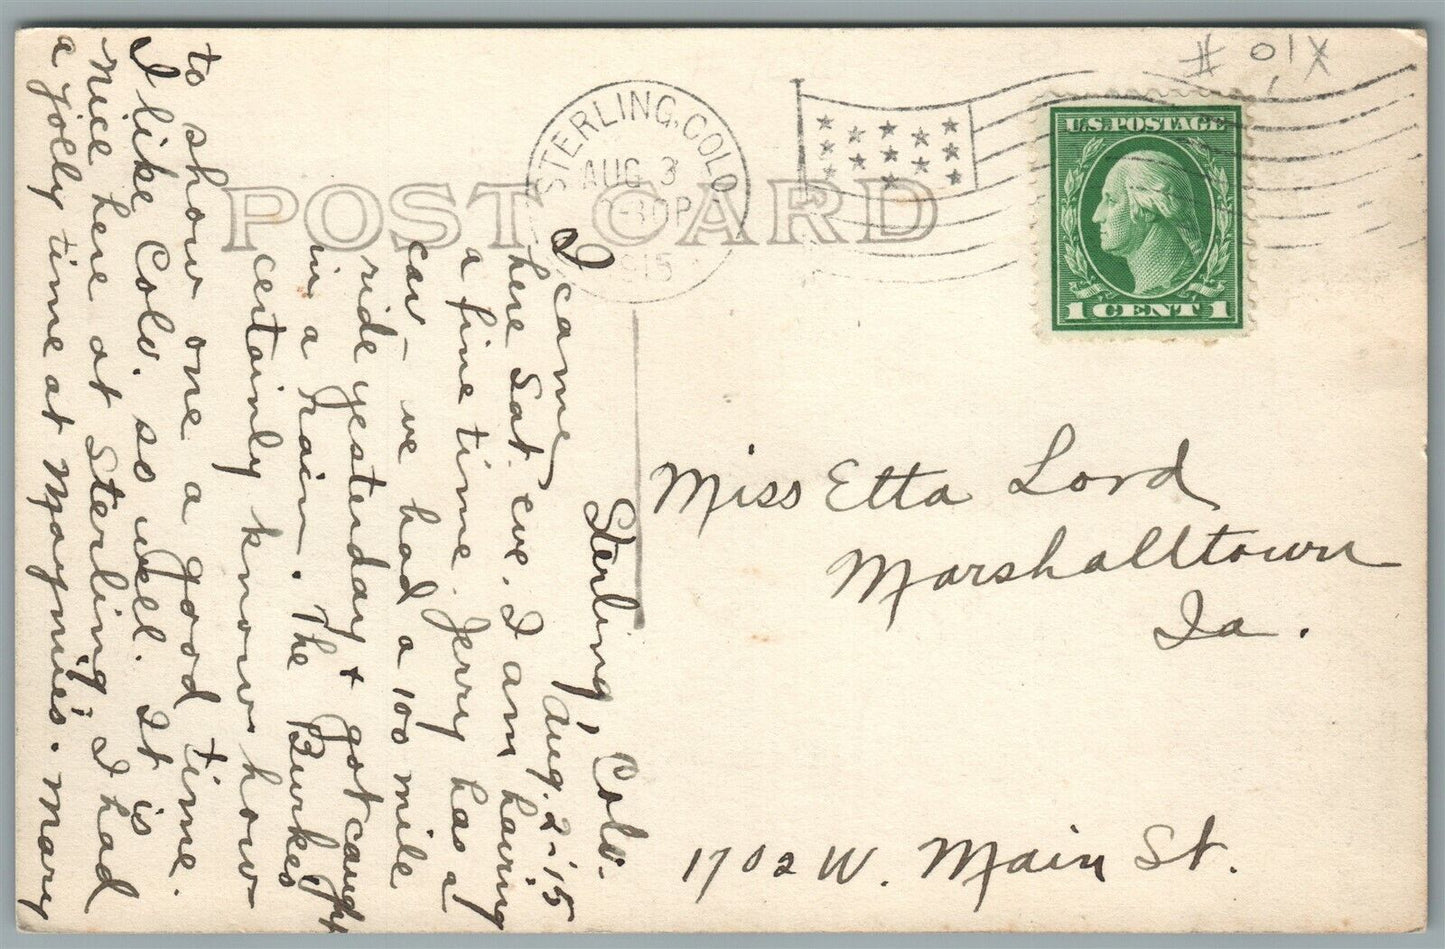 POST CARD
STERLING, COLO.
AUG 3
-30P
1915
U.S. POSTAGE
1 CENT 1
# 01X
Sterling, Colo.
Aug. 2-'15
I came
here Sat. eve. I am having
a fine time. Jerry has a
car - we had a 100 mile
ride yesterday + got caught
in a rain. The Burkes
certainly know how
to show one a good time.
I like Colo. so well. It is
nice here at Sterling; I had
a jolly time at Maymie's. Mary
Miss Etta Lord
Marshalltown
Ia.
1702 W. Main St.